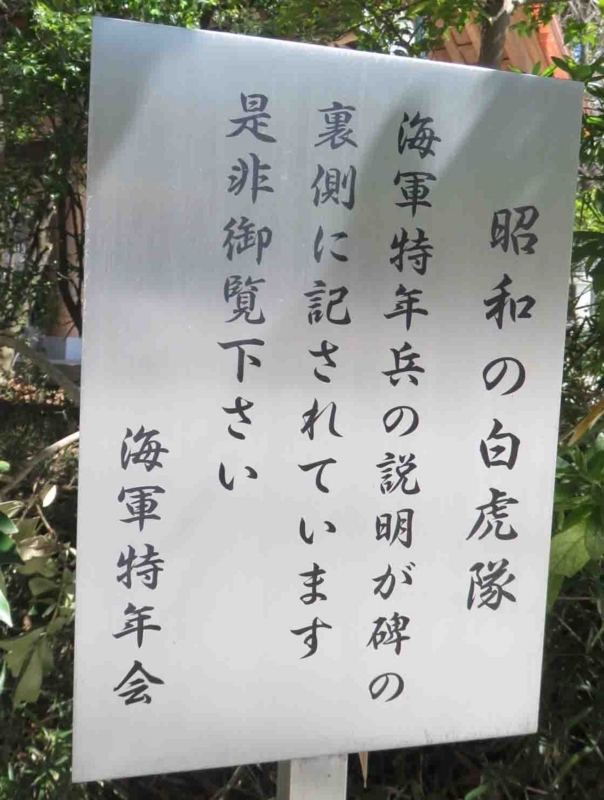 昭和の白虎隊
海軍特年兵の説明が碑の
裏側に記されています
是非御覧下さい
海軍特年会